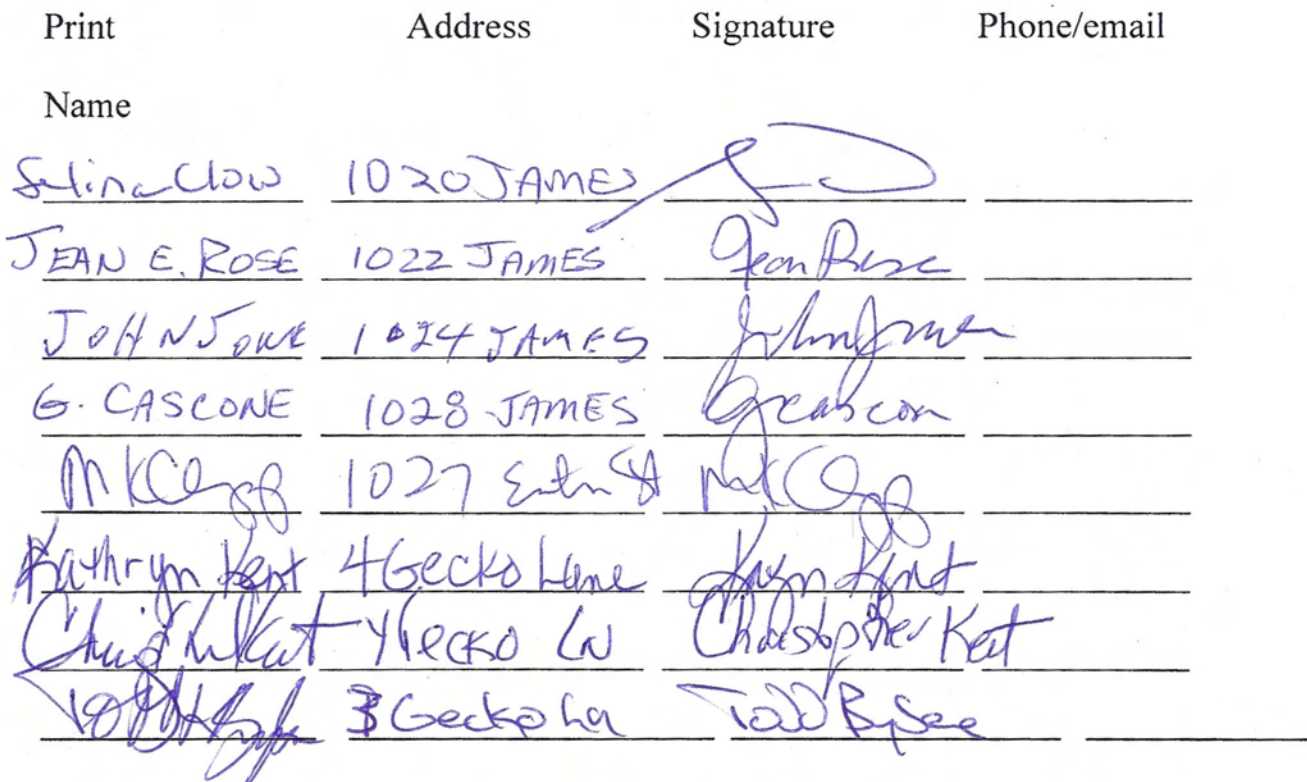 Print Address Signature Phone/email
Name
Selina Clow 1020 JAMES
JEAN E. ROSE 1022 JAMES Jean Rose
JOHN JONE 1024 JAMES John
G. CASCONE 1028 JAMES G Cascon
MKClegg 1027 St MKClegg
Kathryn Kent 4 Gecko Lane Kent
Kent 4 Gecko LN Christopher Kent
3 Gecko Ln Todd